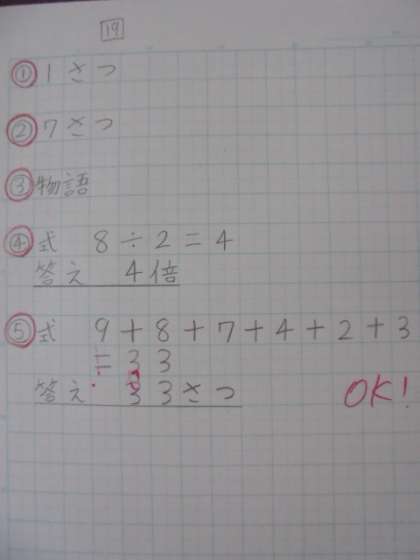 19
① 1さつ
② 7さつ
③ 物語
④ 式 8÷2=4
答え 4倍
⑤ 式 9+8+7+4+2+3
=33
答え 33さつ
OK!